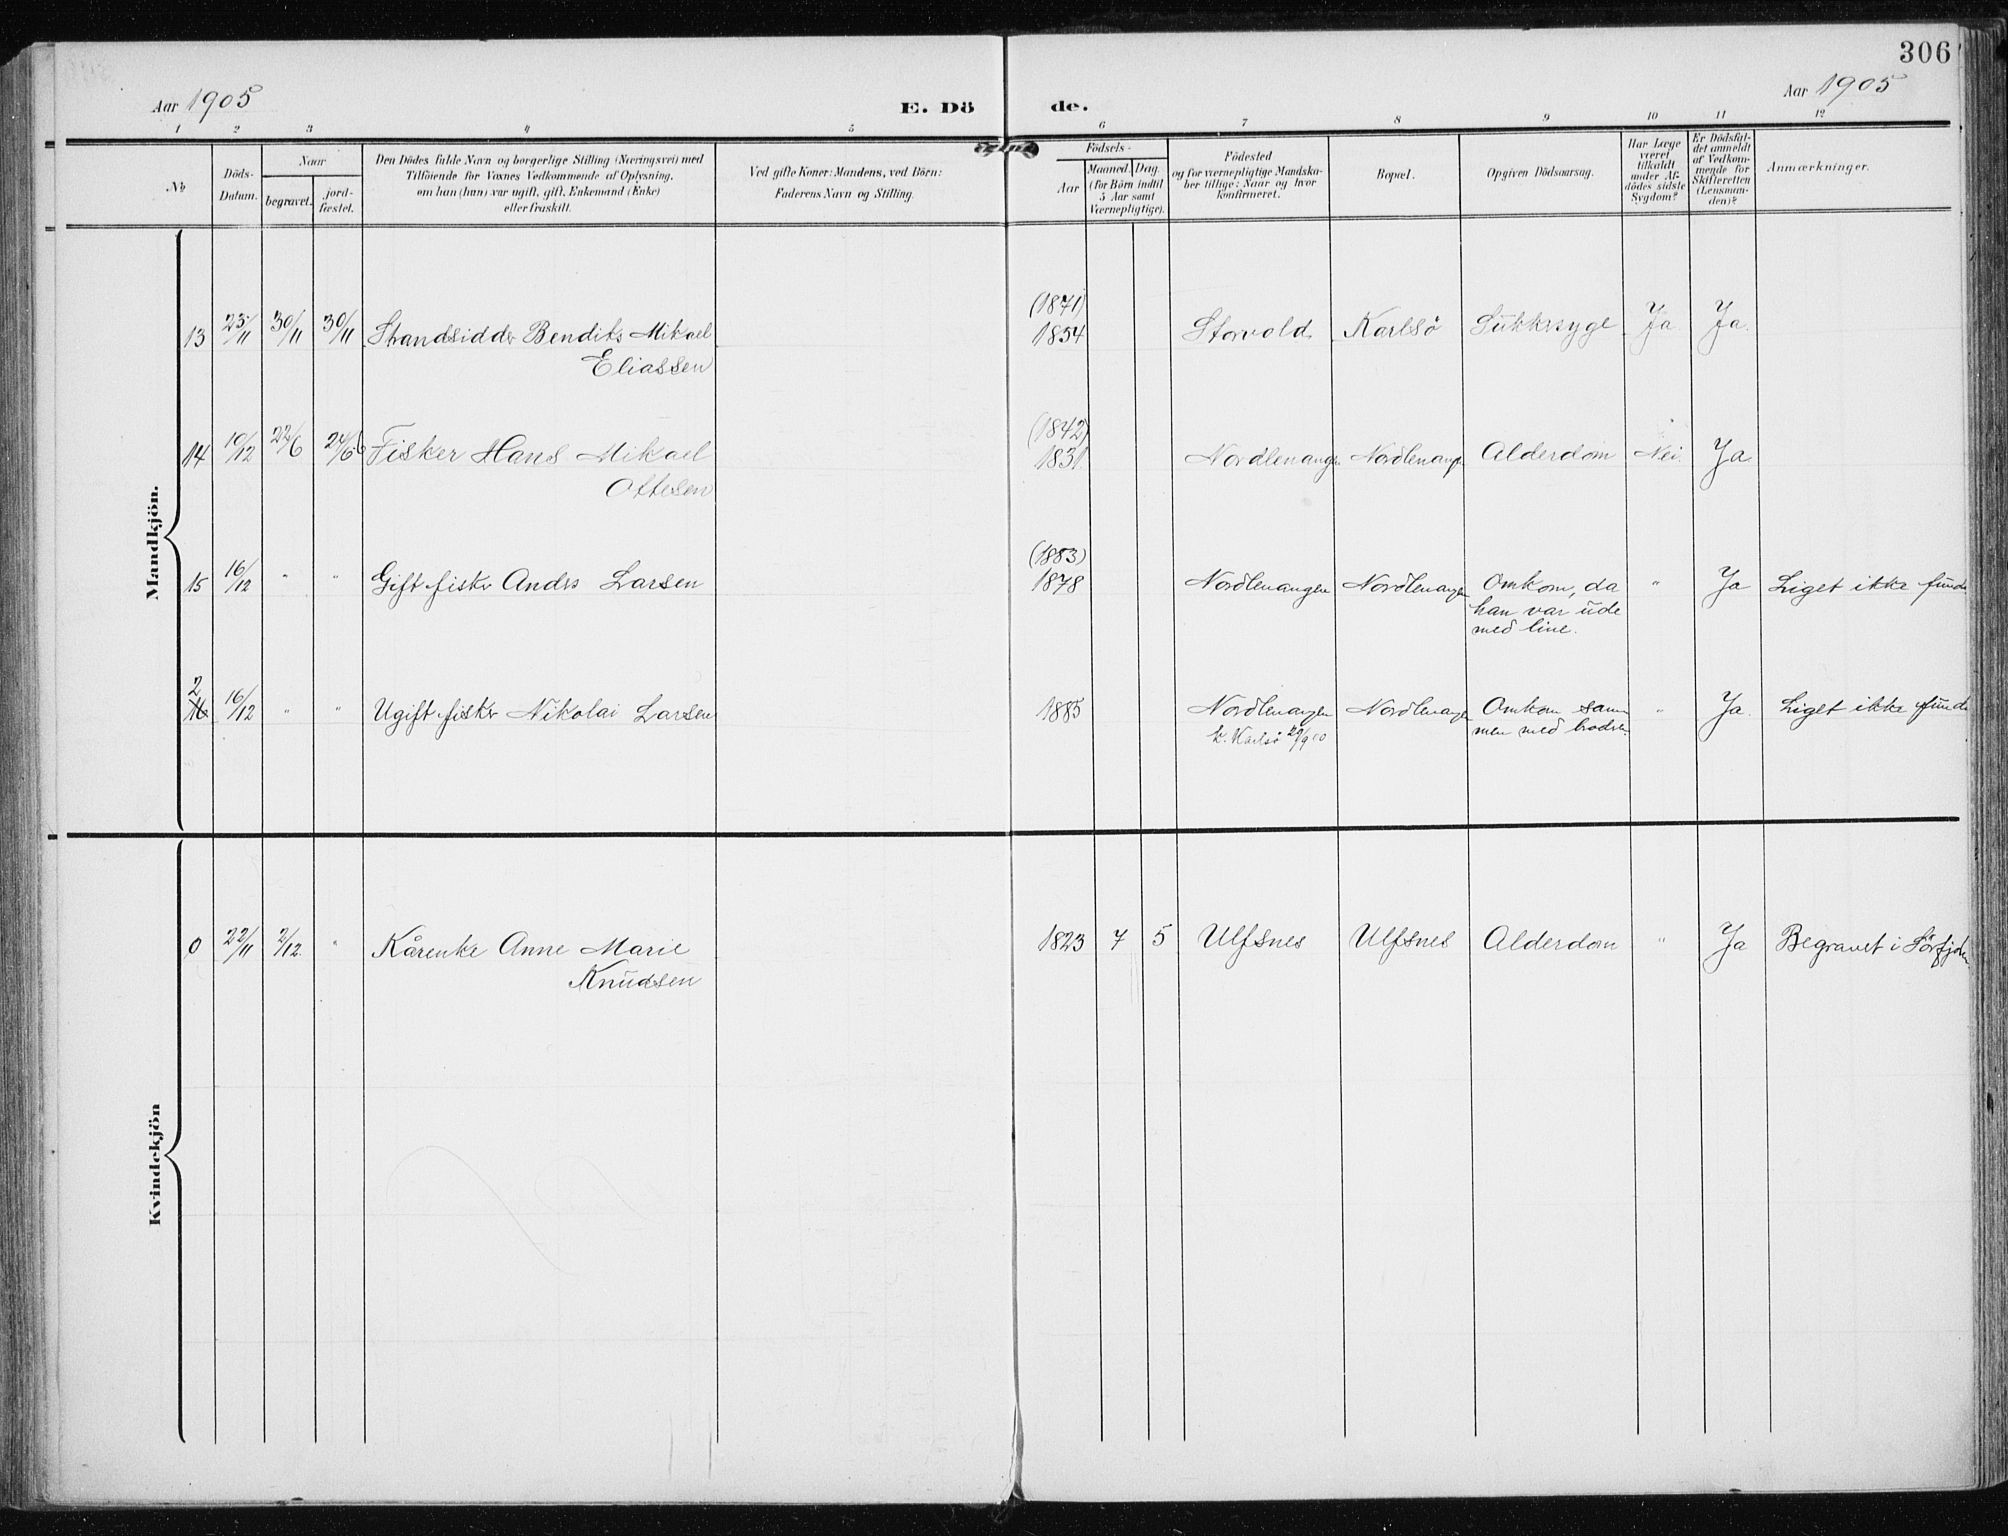 306
Aar 1905
E. Dö
de.
Aar 1905
1 2 3 4 5 6 7 8 9 10 11 12
No
Döds-
Datum.
Naar
begravet.
jord-
fæstet.
Den Dödes fulde Navn og borgerlige Stilling (Næringsvei) med
Tilföiende for Voxnes Vedkommende af Oplysning,
om han (hun) var ugift, gift, Enkemand (Enke)
eller fraskilt.
Ved gifte Koner: Mandens, ved Börn:
Faderens Navn og Stilling.
Födsels-
Aar
Maaned. Dag.
(for Börn indtil
5 Aar samt
Værnepligtige).
Födested
og for værnepligtige Mandska-
ber tillige: Naar og hvor
konfirmeret.
Bopæl.
Opgiven Dödsaarsag.
Har Læge
været
tilkaldt
under Af-
dödes sidste
Sygdom?
Er Dödsfal-
det anmeldt
af Vedkom-
mende for
Skifteretten
(Lensman-
den)?
Anmærkninger.
Mandkjön.
(1871)
13 25/11 30/11 30/11 Strandsidder Bendiks Mikael 1854 Storvold Karlsö Sukkersyge Ja Ja.
Eliassen
(1842)
14 10/12 22/6 24/6 06 Fisker Hans Mikael 1831 Nordlenangen Nordlenangen Alderdom Nei. Ja
Ottesen
(1883)
15 16/12 " " Gift fisker Anders Larsen 1878 Nordlenangen Nordlenangen Omkom, da " Ja Liget ikke funde
han var ude
med line.
2
16 16/12 " " Ugift fisker Nikolai Larsen 1885 Nordlenangen Nordlenangen Omkom sam- " Ja. Liget ikke funde
k. Karlsö 29/9 00 men med brodren
Kvindekjön
0 22/11 2/12. " Kårenke Anne Marie 1823 7 5 Ulfsnes Ulfsnes Alderdom " Ja Begravet i Sörfjorden
Knudsen